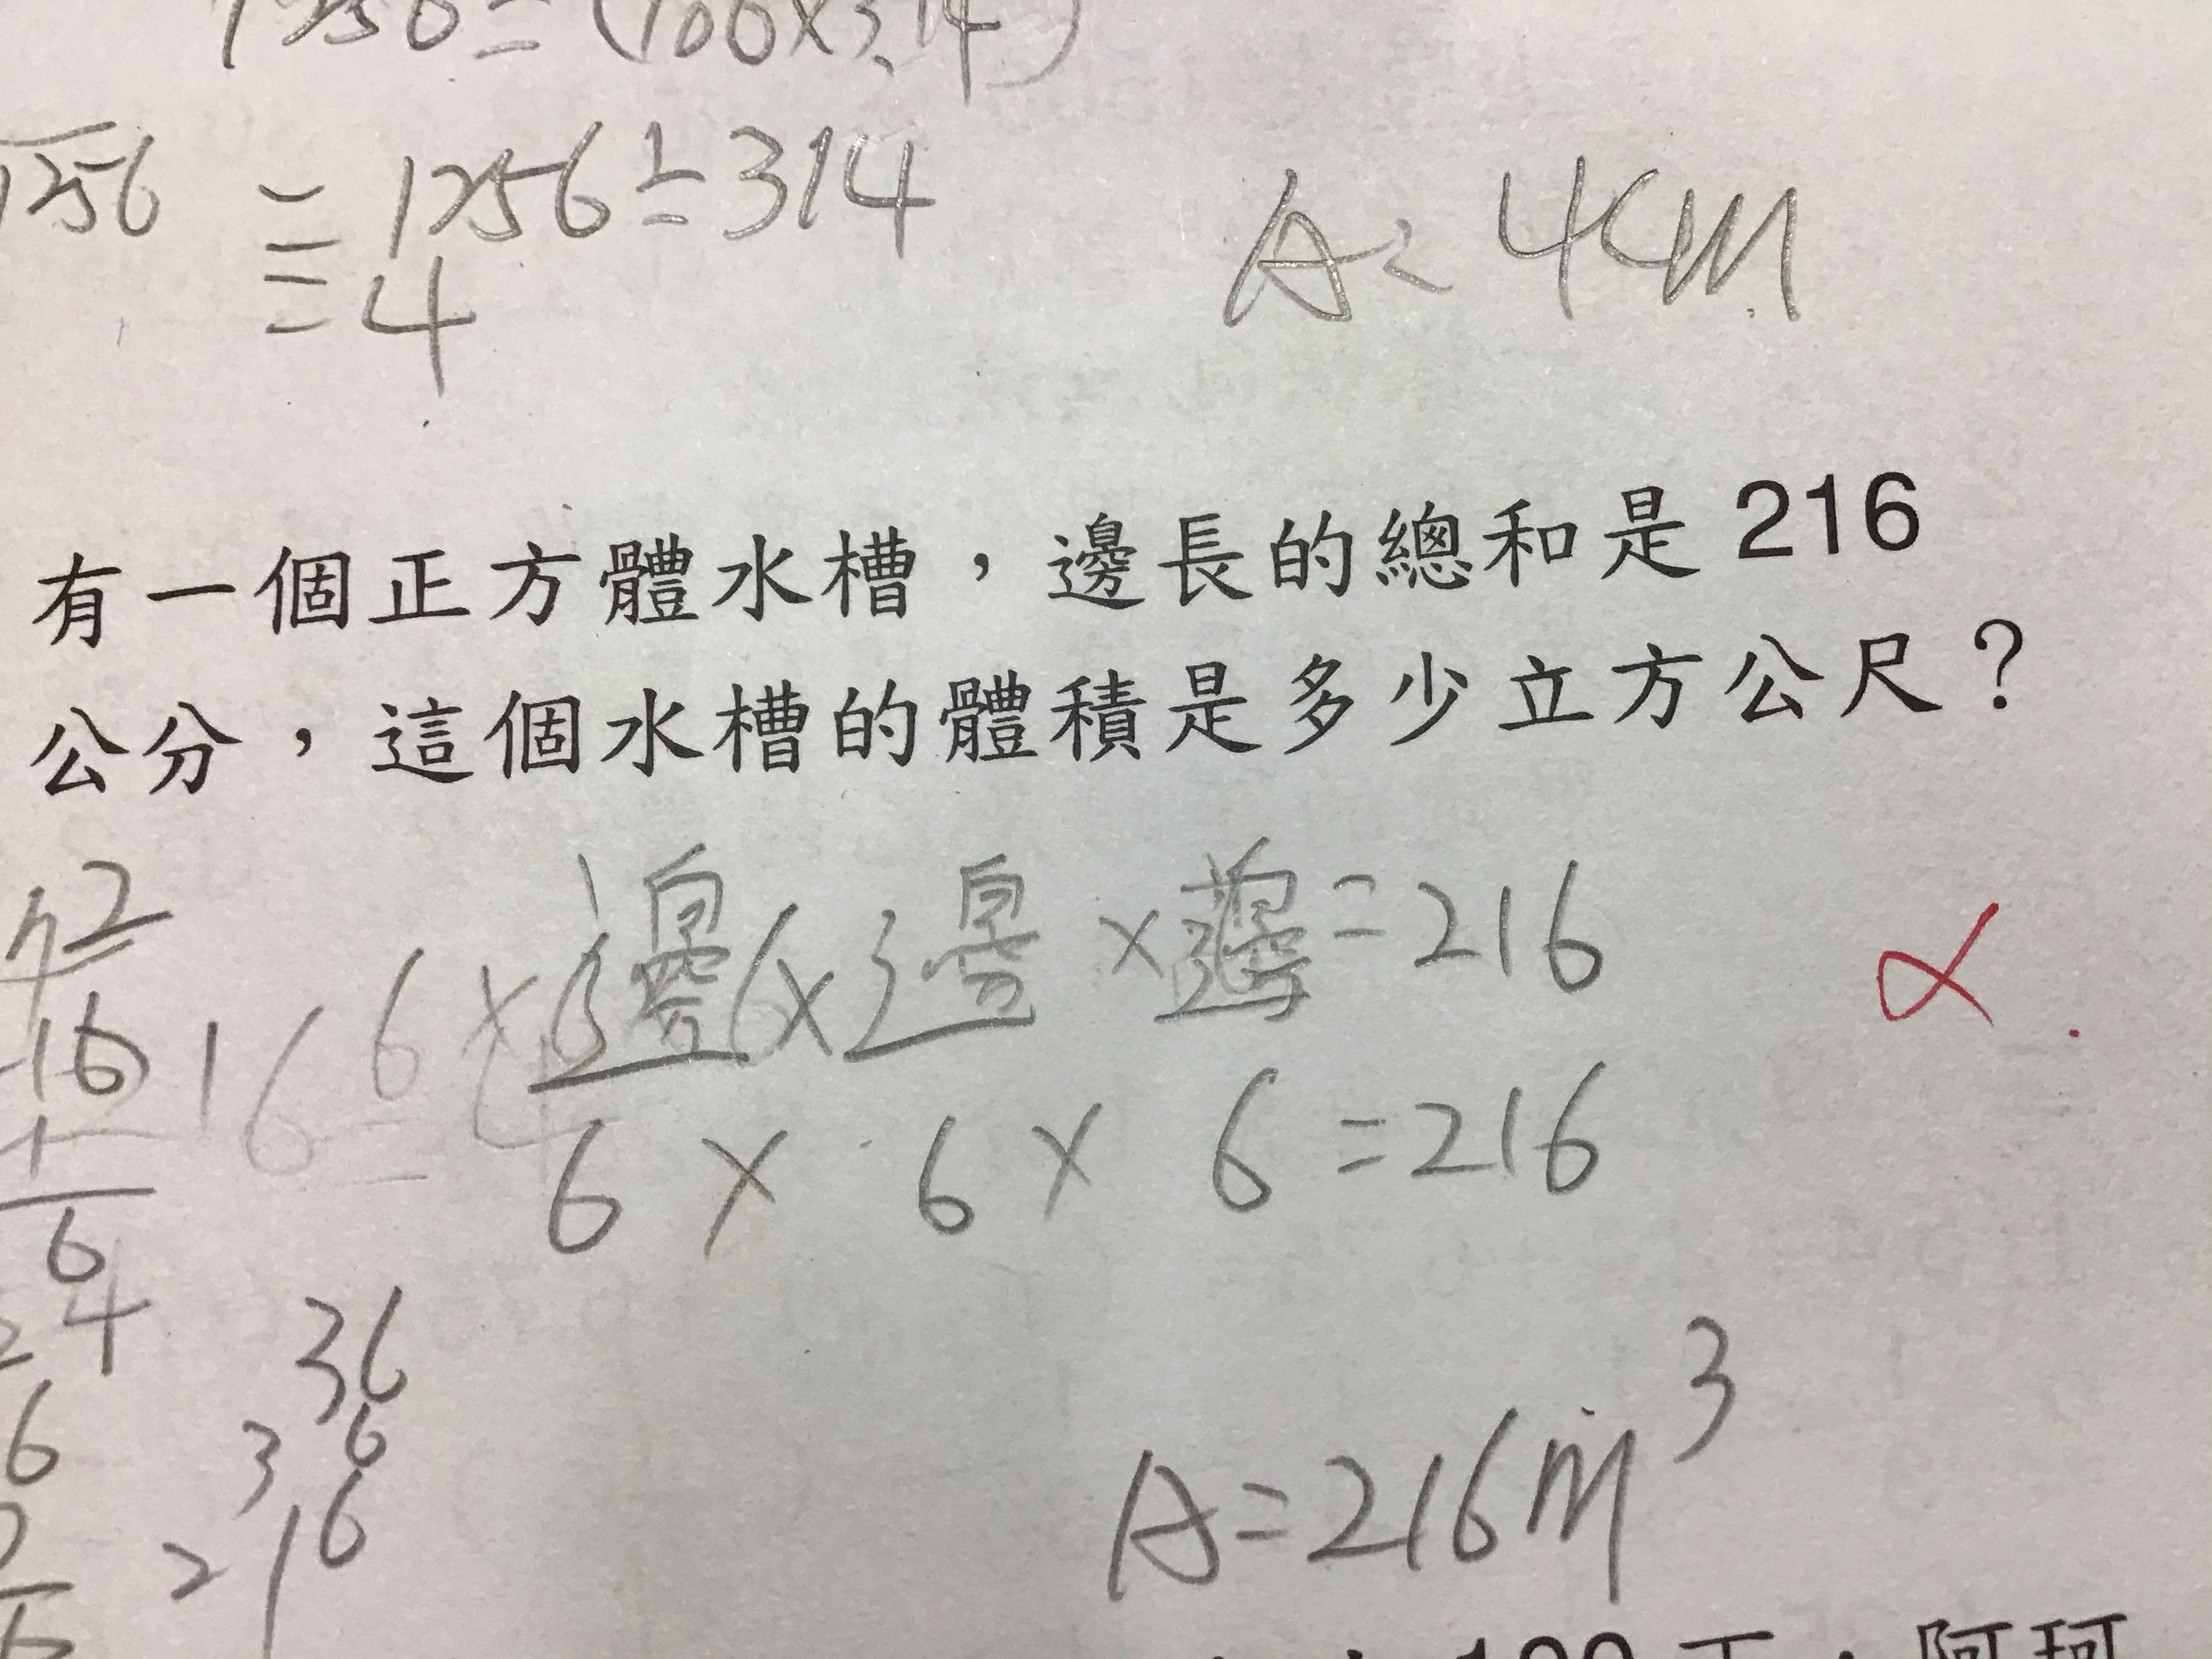 1256÷(100×3.14)
1256 = 1256÷314
=4
A: 4cm
有一個正方體水槽，邊長的總和是 216
公分，這個水槽的體積是多少立方公尺？
邊×邊×邊=216
6 × 6 × 6 =216
36
3 6
216
A=216m³